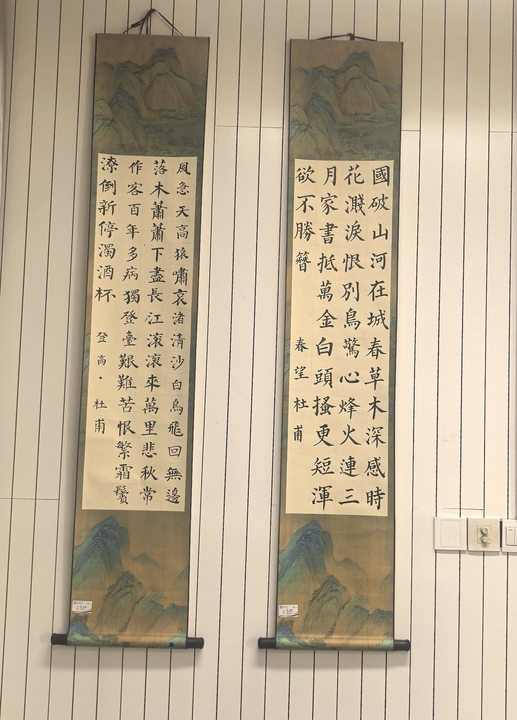 國破山河在城春草木深感時
花濺淚恨別鳥驚心烽火連三
月家書抵萬金白頭搔更短渾
欲不勝簪 春望杜甫
風急天高猿嘯哀渚清沙白鳥飛回無邊
落木蕭蕭下盡長江滾滾來萬里悲秋常
作客百年多病獨登臺艱難苦恨繁霜鬢
潦倒新停濁酒杯 登高·杜甫